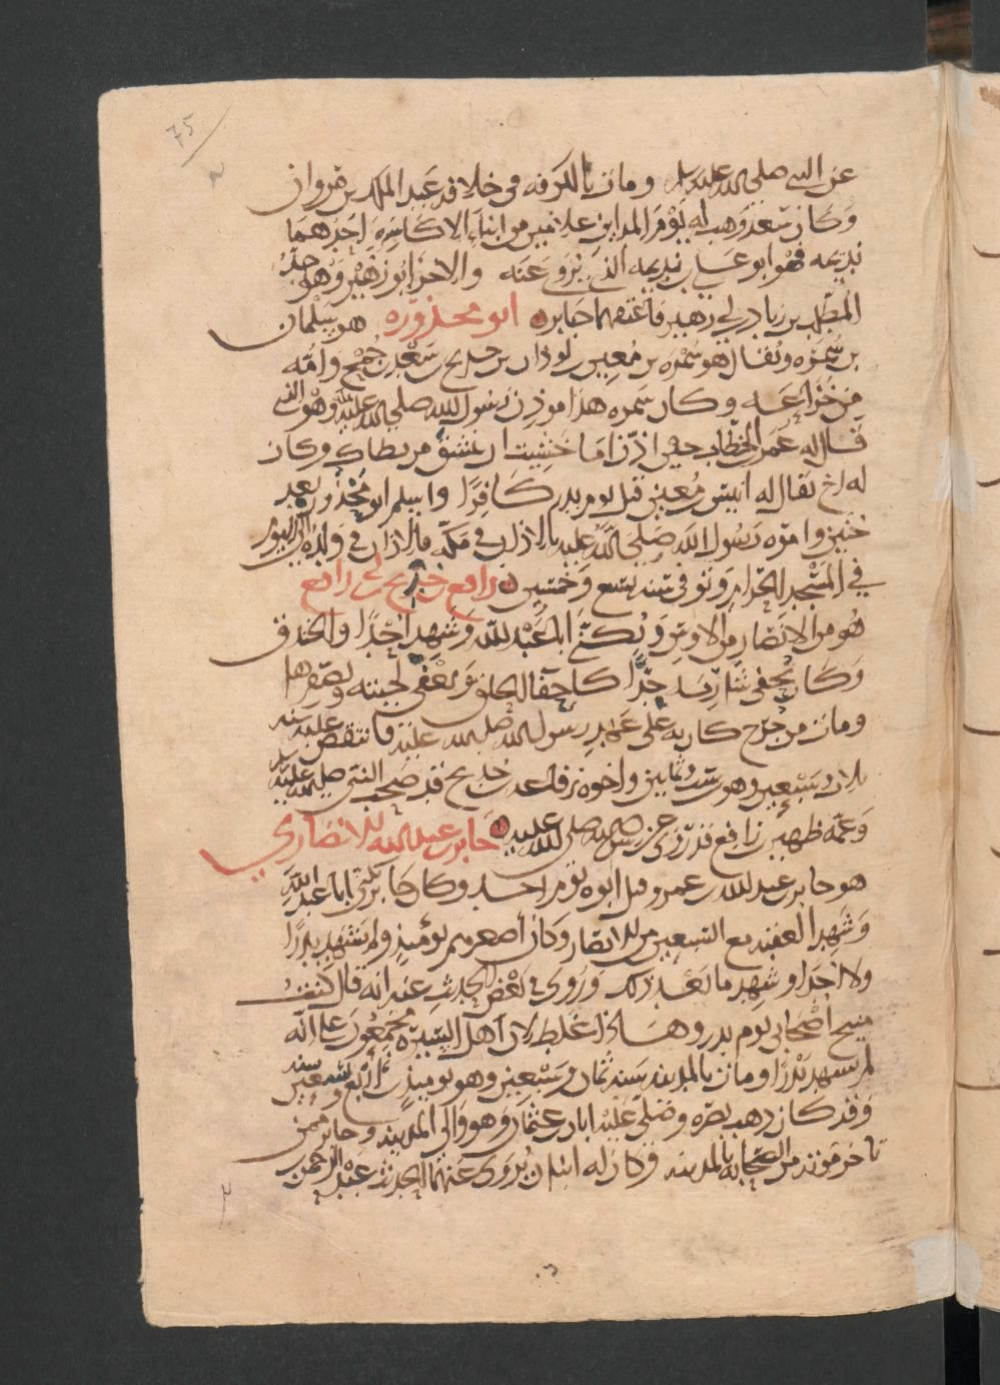 75
عن النبي صلى الله عليه وسلم ومات بالكوفة في خلافة عبد الملك بن مروان
وكان سعد وهب له يوم المداين غلامين من ابناء الاكاسره احدهما
نديمه فهو ابو علي بن نديمه الذي يروى عنه والاخر ابو زهير وهو جد
المطلب بن زياد بن ابي زهير فاعتقهما جابر ابو محذوره هو سلمان
بن سمره ويقال هو سمره بن معير بن لوذان بن جريج بن سعد بن جمح وامه
من خزاعه وكان سمره هذا موذن رسول الله صلى الله عليه وهو الذي
قال له عمر بن الخطاب حين اذن اما خشيت ان ينشق مريطاك وكان
له اخ يقال له انيس بن معير قتل يوم بدر كافرا واسلم ابو محذوره بعد
حنين وامره رسول الله صلى الله عليه بالاذان في مكه فالاذان في ولده الى اليوم
في المسجد الحرام وتوفى سنة تسع وخمسين رافع بن خديج بن رافع
هو من الانصار من الاوس ويكنى ابا عبد الله وشهد احدا والخندق
وكان يحفي شاربه جدا كاحفا الحلق ويعفي لحيته ويصفرها
ومات من جرح كان به على عهد رسول الله صلى الله عليه فانتقض عليه سنة
ثلاث وسبعين وهو ست وثمانين واخوه رفاعه بن خديج قد صحب النبي صلى الله عليه
وعمه ظهير بن رافع قد روى عن رسول الله صلى الله عليه جابر بن عبد الله الانصاري
هو جابر بن عبد الله بن عمرو قتل ابوه يوم احد وكان جابر يكنى ابا عبد الله
وشهد العقبه مع السبعين من الانصار وكان اصغرهم يومئذ ولم يشهد بدرا
ولا احدا وشهد ما بعد ذلك وروى في بعض الحديث عنه انه قال كنت
منيح اصحابي يوم بدر وهذا غلط لان اهل السيره مجمعون على انه
لم يشهد بدرا ومات بالمدينه سنة ثمان وسبعين وهو يومئذ بن اربع وتسعين سنه
وقد كان ذهب بصره وصلى عليه ابان بن عثمان وهو والي المدينه وجابر ممن
تاخر موته من الصحابه بالمدينه وكان له ابنان يروى عنهما الحديث عبد الرحمن